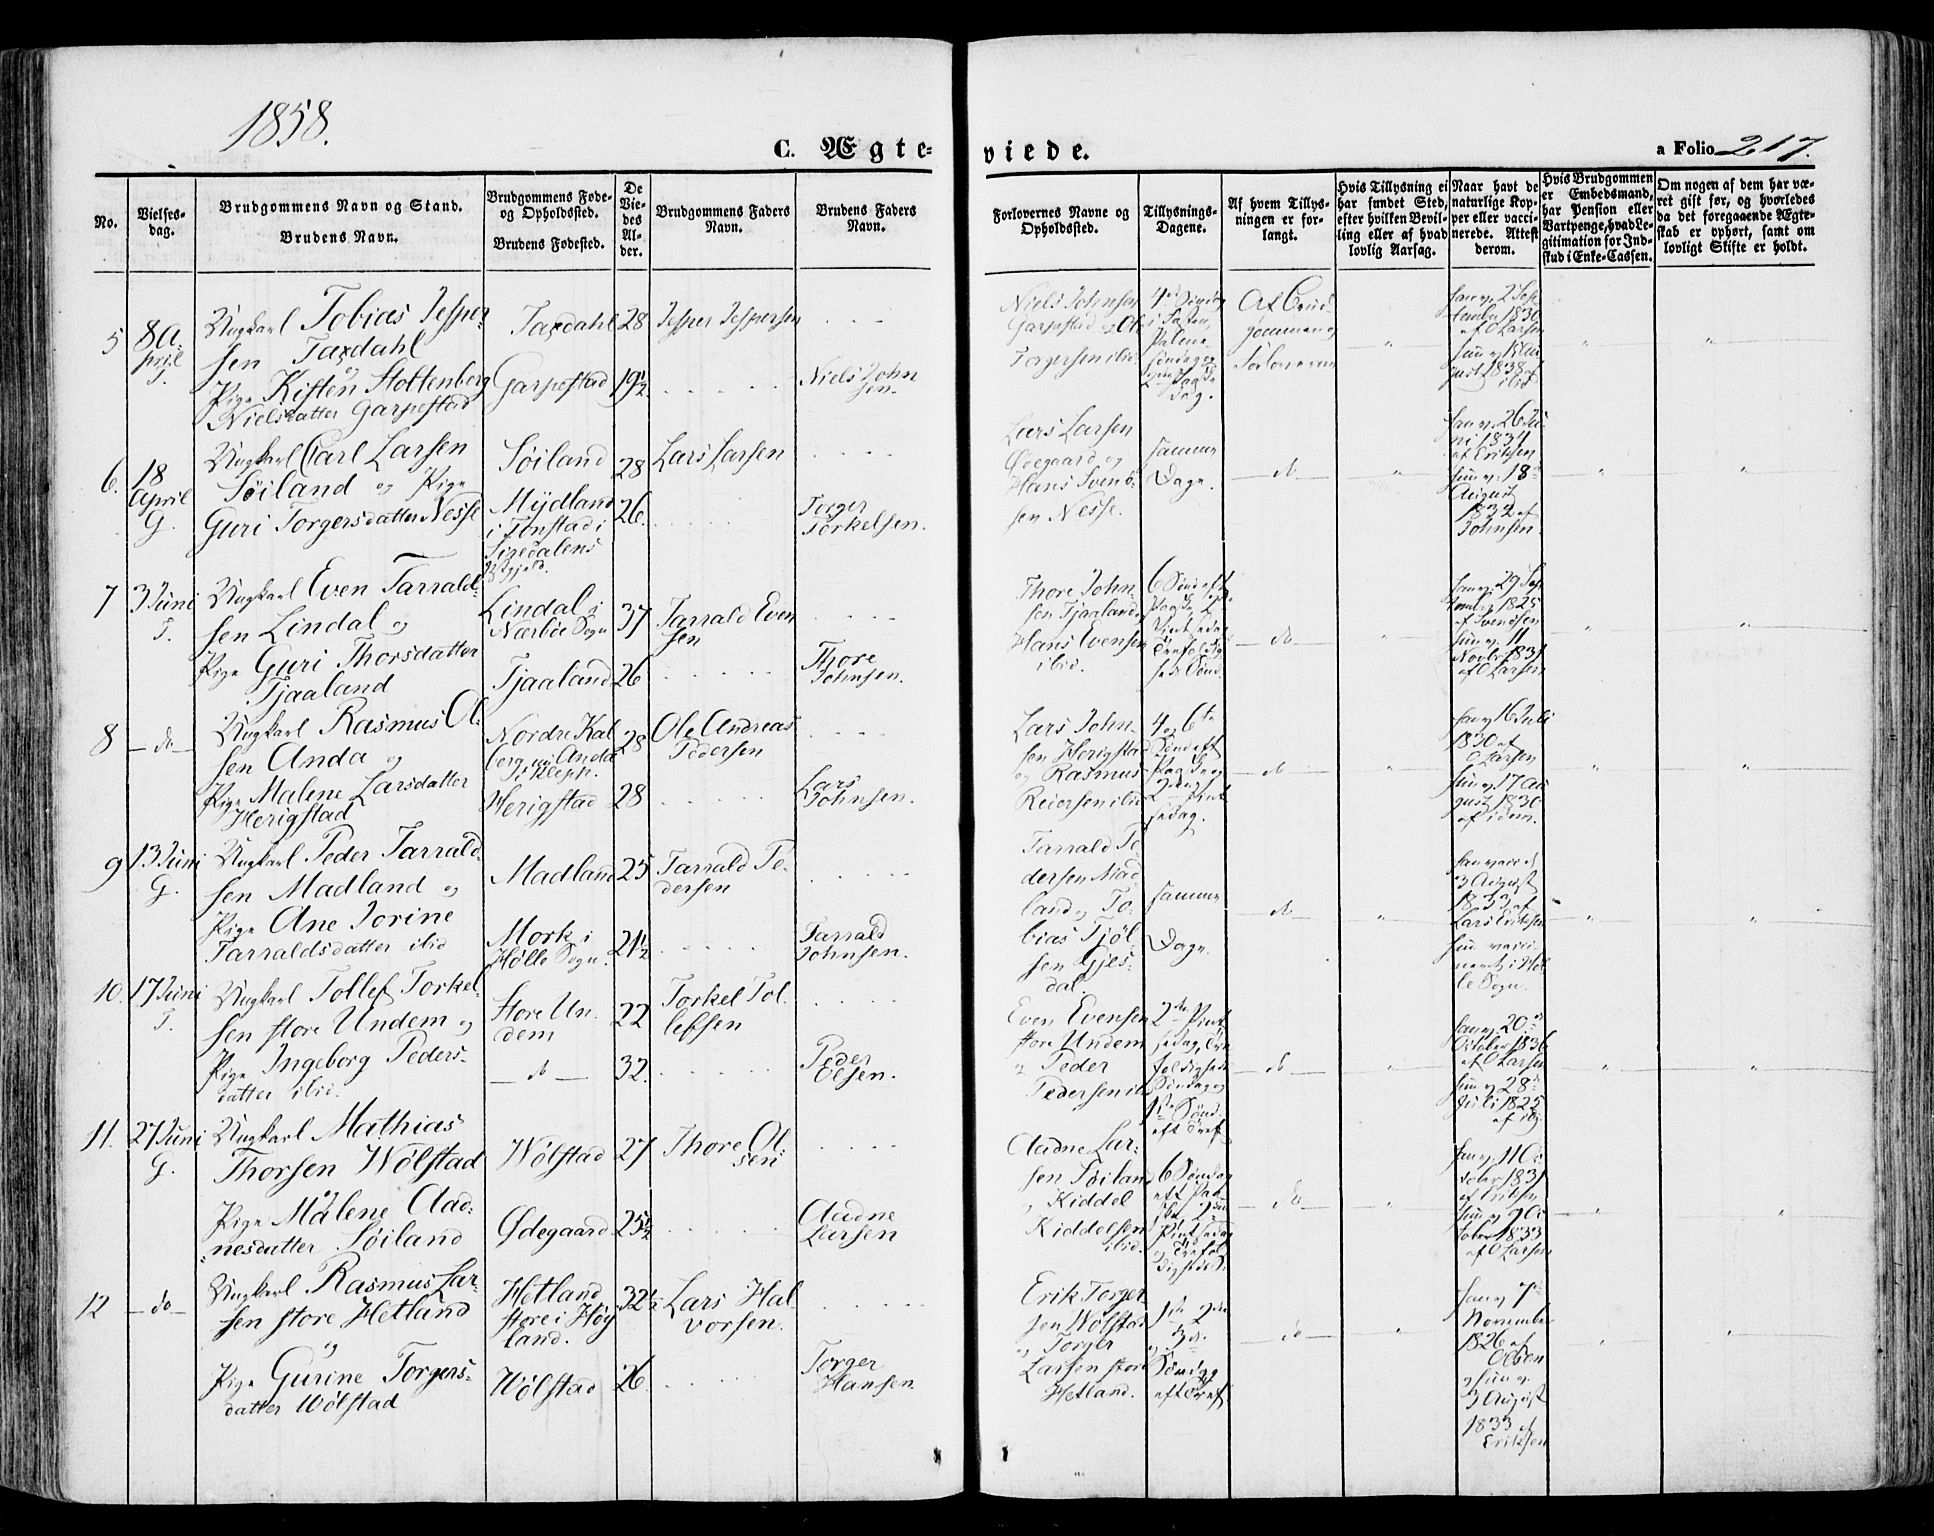 1858.
C. Ægte=
viede.
a Folio 217.
No.
Vielses-
dag.
Brudgommens Navn og Stand.
Brudens Navn.
Brudgommens Føde-
og Opholdssted.
Brudens Fødested.
De
Vie-
des
Al-
der.
Brudgommens Faders
Navn.
Brudens Faders
Navn.
Forlovernes Navne og
Opholdssted.
Tillysnings-
Dagene.
Af hvem Tillys-
ningen er for-
langt.
Hvis Tillysning ei
har fundet Sted,
efter hvilken Bevil-
ling eller af hvad
lovlig Aarsag.
Naar havt de
naturlige Kop-
per eller vacci-
nerede. Attest
derom.
Hvis Brudgommen
er Embedsmand,
har Pension eller
Vartpenge, hvad Le-
gitimation for Ind-
skud i Enke-Cassen.
Om nogen af dem har væ-
ret gift før, og hvorledes
da det foregaaende Ægte-
skab er ophørt, samt om
lovligt Skifte er holdt.
5
8 A-
pril
T.
Ungkarl Tobias Jesper-
sen Taxdahl
og
Pige Kisten Stottenberg
Nielsdatter Garpestad
Taxdahl
Garpestad
28
19½
Jesper Jespersen
Niels John
sen.
Niels Johnsen
Garpestad og Ol
Torgersen ibid
4de Søndag
i Fasten,
Palme
søndag og
2den Paaske
dag.
Af Brud
gommen og
Forloverne
han v. 2 Sep
tember 1830
af O Larsen
hun v. 18 Au
gust 1838 af
ibid
6.
18
April
G.
Ungkarl Carl Larsen
Søiland og Pige
Guri Torgersdatter Nesse
Søiland
Mydland
i Tonstad i
Siredalens
Pgjeld.
28
26.
Lars Larsen
Torger
Torkelsen.
Lars Larsen
Ødegaard og
Hans Svend
sen Nesse.
samme
Dage.
do
han v. 26 Ju
ni 1831
af Eriksen
hun v. 18de
August
1832 af
Johnsen.
7
3 Juni
T.
Ungkarl Even Tarrald-
sen Lindal og
Pige Guri Thorsdatter
Tjaaland
Lindal i
Nærbøe Sogn
Tjaaland
37
26
Tarrald Even
sen
Thore
Johnsen.
Thore John
sen Tjaaland og
Hans Evensen
ibid.
6 Sønd eft
Paaske, 2
Pintsedag
Trefoldig
heds Sønd.
do
han v. 29 Sep
tember 1825
af Svendsen
hun v. 11
Novbr 1831
af O Larsen
8
do
Ungkarl Rasmus Ol
sen Anda og
Pige Malene Larsdatter
Herigstad
Nordre Kal
berg nu Anda
i Klepp.
Herigstad
28
28
Ole Andreas
Pedersen
Lars
Johnsen.
Lars John
sen Herigstad
og Rasmus
Reiersen ibid
4 og 6te
Sønd eft
Paaske og
2den Pint
sedag.
do
han v. 16 Juli
1830 af
O Larsen
hun v. 17 Au
gust 1830
af idem.
9
13 Juni
G.
Ungkarl Peder Tarrald-
sen Madland og
Pige Ane Jorine
Tarraldsdatter ibid
Madland
Mork i
Hølle Sogn.
25
21½
Tarrald Pe-
dersen
Tarrald
Johnsen.
Tarrald Pe
dersen Mad
land og To-
bias Tjøl
sen Gjes-
dal
samme
Dage.
do
han vacc d
3 August
1833 af
Lars Eriksen
hun vacci-
neret i Høl
le Sogn.
10.
17 Juni
T.
Ungkarl Tollef Torkel-
sen store Undem og
Pige Ingeborg Peders-
datter ibid.
Store Un-
dem
do
22
32.
Torkel Tol
lefsen
Peder
Olsen.
Even Evensen
store Undem
og Peder
Pedersen ib
2den Pint
sedag, Tre
foldigheds
Søndag og
1ste Sønd.
eft Tref
do
han v. 20de
October 1836
af O Larsen
hun v. 28de
Juli 1825
af ibid
11.
27 Juni
G.
Ungkarl Mathias
Thorsen Wølstad
og
Pige Malene Aad-
nesdatter Søiland
Wølstad
Ødegaard
27
25½
Thore Ol-
sen
Aadne
Larsen
Aadne Lar-
sen Søiland
og Kiddel
Kiddelsen
ibid.
6 Søndag
eft Paa-
ske, 2den
Pintsedag
og Trefol
digheds S.
do
han v. 11 Oc
tober 1831
af Eriksen
hun v. 9 Oc
tober 1833
af O Larsen
12
do
Ungkarl Rasmus Lar-
sen store Hetland
og
Pige Gurine Torgers-
datter Wølstad
Hetland
store i Høy
land.
Wølstad
32½
26.
Lars Hal
vorsen.
Torger
Hansen.
Erik Torger
sen Wølstad
og Torger
Larsen store
Hetland.
1ste 2den
og 3de
Søndag
eft Tref
do
han v. 7de
November
1826 af
Olsen
og hun v.
3 August
1833 af
Eriksen